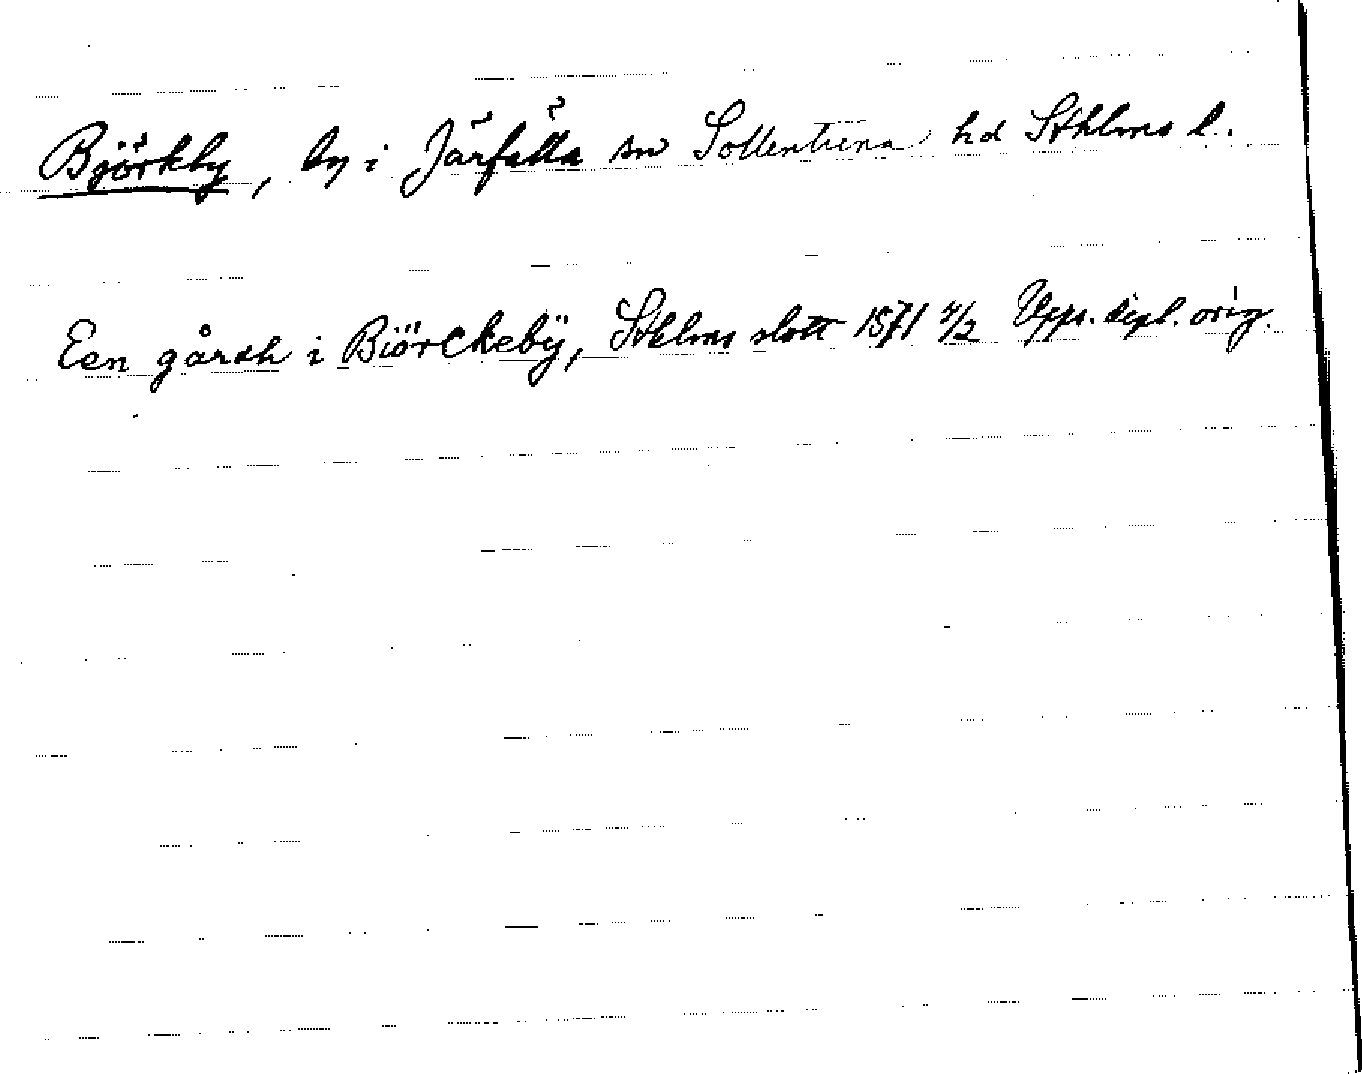 Björkby, by i Järfälla sn Sollentuna hd Sthlms l.
Een gårdh i Biörckebÿ, Sthlms slott 1571 4/2 Upps. dipl. orig.